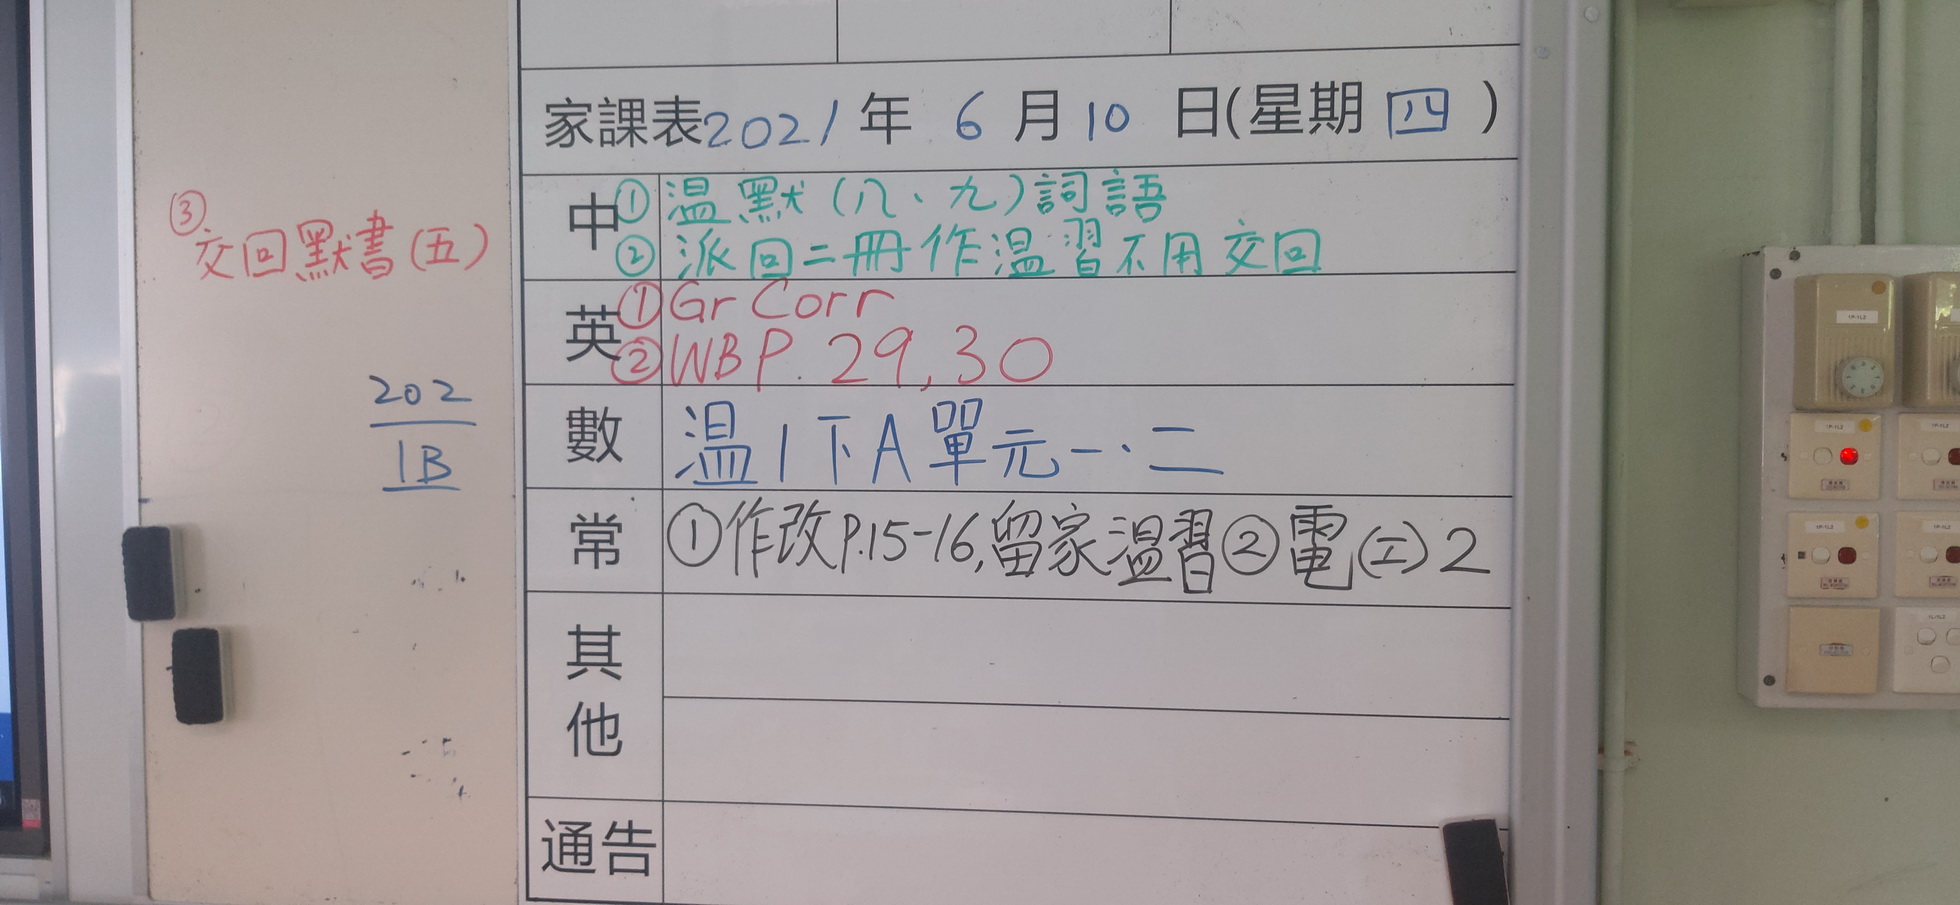 家課表2021年 6月10日(星期四)
中
①温默(八、九)詞語
②派回二冊作温習不用交回
③
交回默書(五)
英
①Gr Corr
②WB P. 29, 30
202
1B
數
温1下A單元一.二
常
①作改P.15-16,留家温習②電(二)2
其他
通告